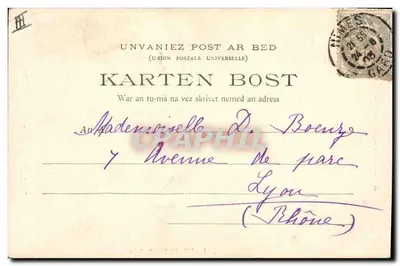 NIMES
21 55
24 - 6
05
GARD
UNVANIEZ POST AR BED
(UNION POSTALE UNIVERSELLE)
KARTEN BOST
War an tu-ma na vez skrivet nemed an adress
Mademoiselle D.
7 Avenue de parc
Lyon
(Rhône)